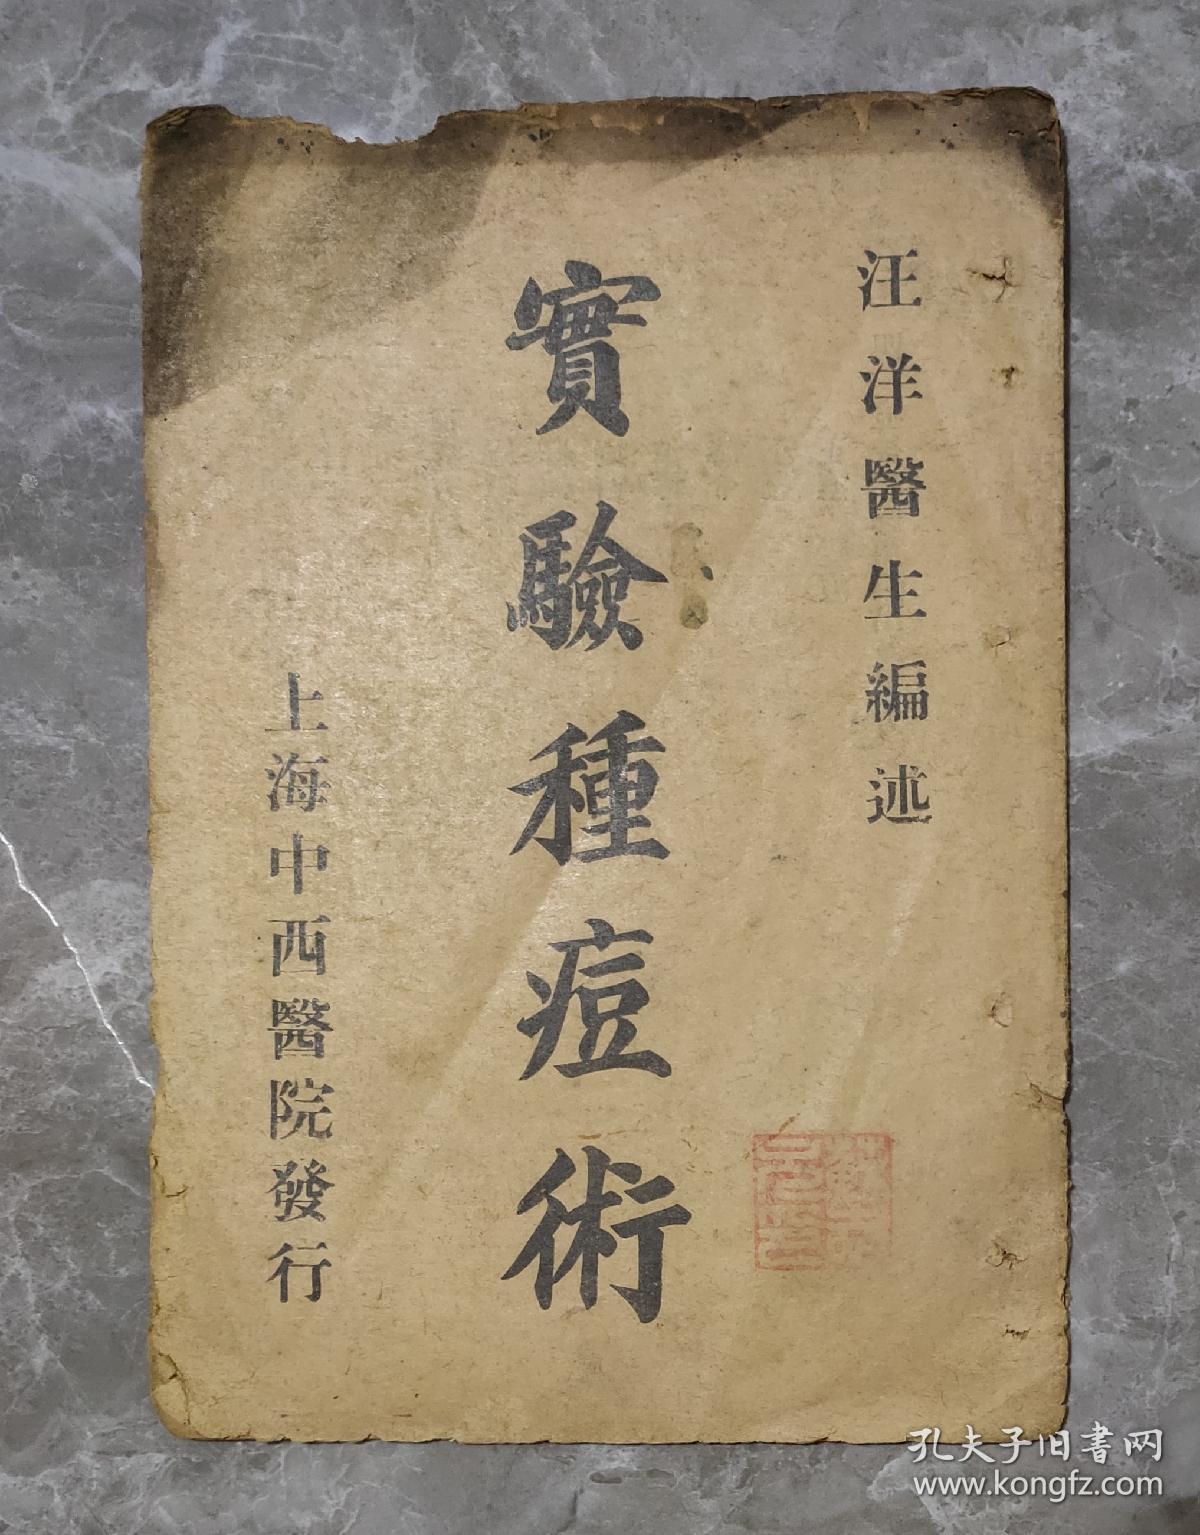 汪洋醫生編述
實驗種痘術
上海中西醫院發行
孔夫子旧書网
www.kongfz.com